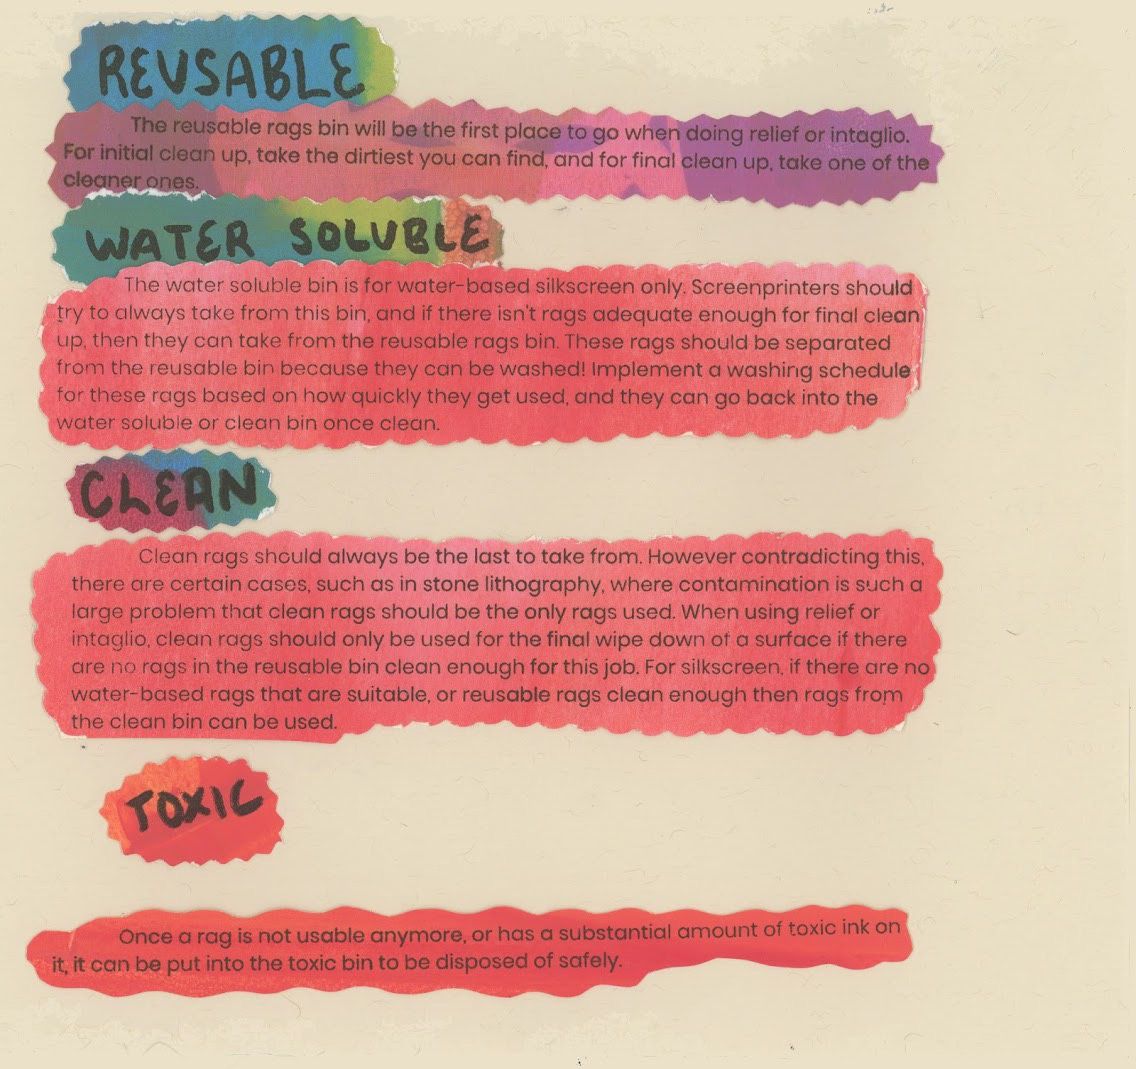 REUSABLE
The reusable rags bin will be the first place to go when doing relief or intaglio.
For initial clean up, take the dirtiest you can find, and for final clean up, take one of the
cleaner ones.
WATER SOLUBLE
The water soluble bin is for water-based silkscreen only. Screenprinters should
try to always take from this bin, and if there isn't rags adequate enough for final clean
up, then they can take from the reusable rags bin. These rags should be separated
from the reusable bin because they can be washed! Implement a washing schedule
for these rags based on how quickly they get used, and they can go back into the
water soluble or clean bin once clean.
CLEAN
Clean rags should always be the last to take from. However contradicting this,
there are certain cases, such as in stone lithography, where contamination is such a
large problem that clean rags should be the only rags used. When using relief or
intaglio, clean rags should only be used for the final wipe down of a surface if there
are no rags in the reusable bin clean enough for this job. For silkscreen, if there are no
water-based rags that are suitable, or reusable rags clean enough then rags from
the clean bin can be used.
TOXIC
Once a rag is not usable anymore, or has a substantial amount of toxic ink on
it, it can be put into the toxic bin to be disposed of safely.